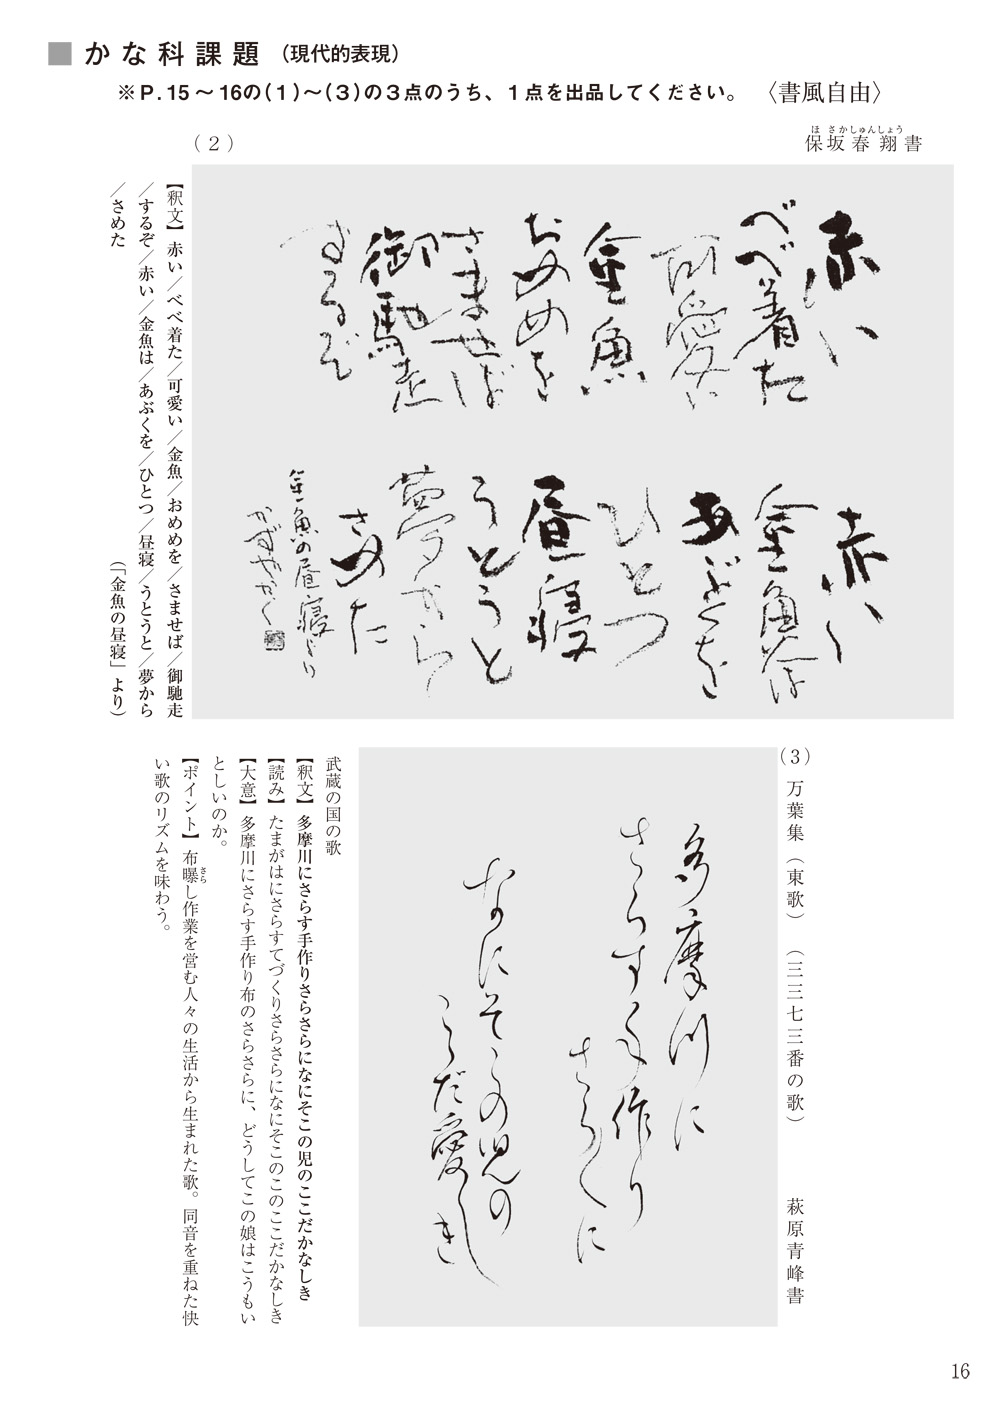 ■かな科課題（現代的表現）
※P.15〜16の（1）〜（3）の3点のうち、1点を出品してください。〈書風自由〉
（2）
保坂春翔書
ほさかしゅんしょう
赤い
べべ着た
可愛い
金魚
おめめを
さませば
御馳走
するぞ
赤い
金魚は
あぶくを
ひとつ
昼寝
うとうと
夢から
さめた
金魚の昼寝より
かずやかく
【釈文】赤い／べべ着た／可愛い／金魚／おめめを／さませば／御馳走
／するぞ／赤い／金魚は／あぶくを／ひとつ／昼寝／うとうと／夢から
／さめた
（「金魚の昼寝」より）
（3）
万葉集（東歌）（三三七三番の歌）
萩原青峰書
多摩川に
さらす手作り
さらさらに
なにそこの児の
ここだ愛しき
武蔵の国の歌
【釈文】多摩川にさらす手作りさらさらになにそこの児のここだかなしき
【読み】たまがはにさらすてづくりさらさらになにそこのこのここだかなしき
【大意】多摩川にさらす手作り布のさらさらに、どうしてこの娘はこうもい
としいのか。
【ポイント】布曝し作業を営む人々の生活から生まれた歌。同音を重ねた快
さら
い歌のリズムを味わう。
16